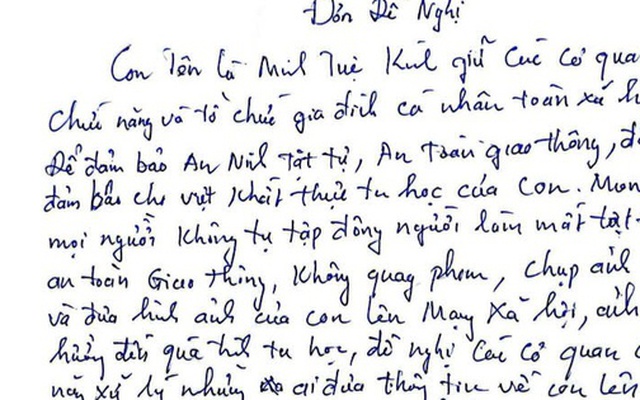 Đơn Đề Nghị
Con Tên là Minh Tuệ Kính giử Các Cơ qua
chức năng và tổ chức gia đình cá nhân toàn xã h
Để đảm bảo An Ninh Tật tự, An Toàn giao thông, đ
đảm bảo cho việt khất thực tu học của Con. Mon
mọi người không tụ tập đông người làm mất tật
an toàn Giao thông, không quay phem, chụp ảnh
và đưa hình ảnh của con lên Mạng Xã hội, ảnh
hưởng đến quá trình tu học, đề nghị Các Cơ quan c
năng xử lý những ai đưa thông tin về con lên